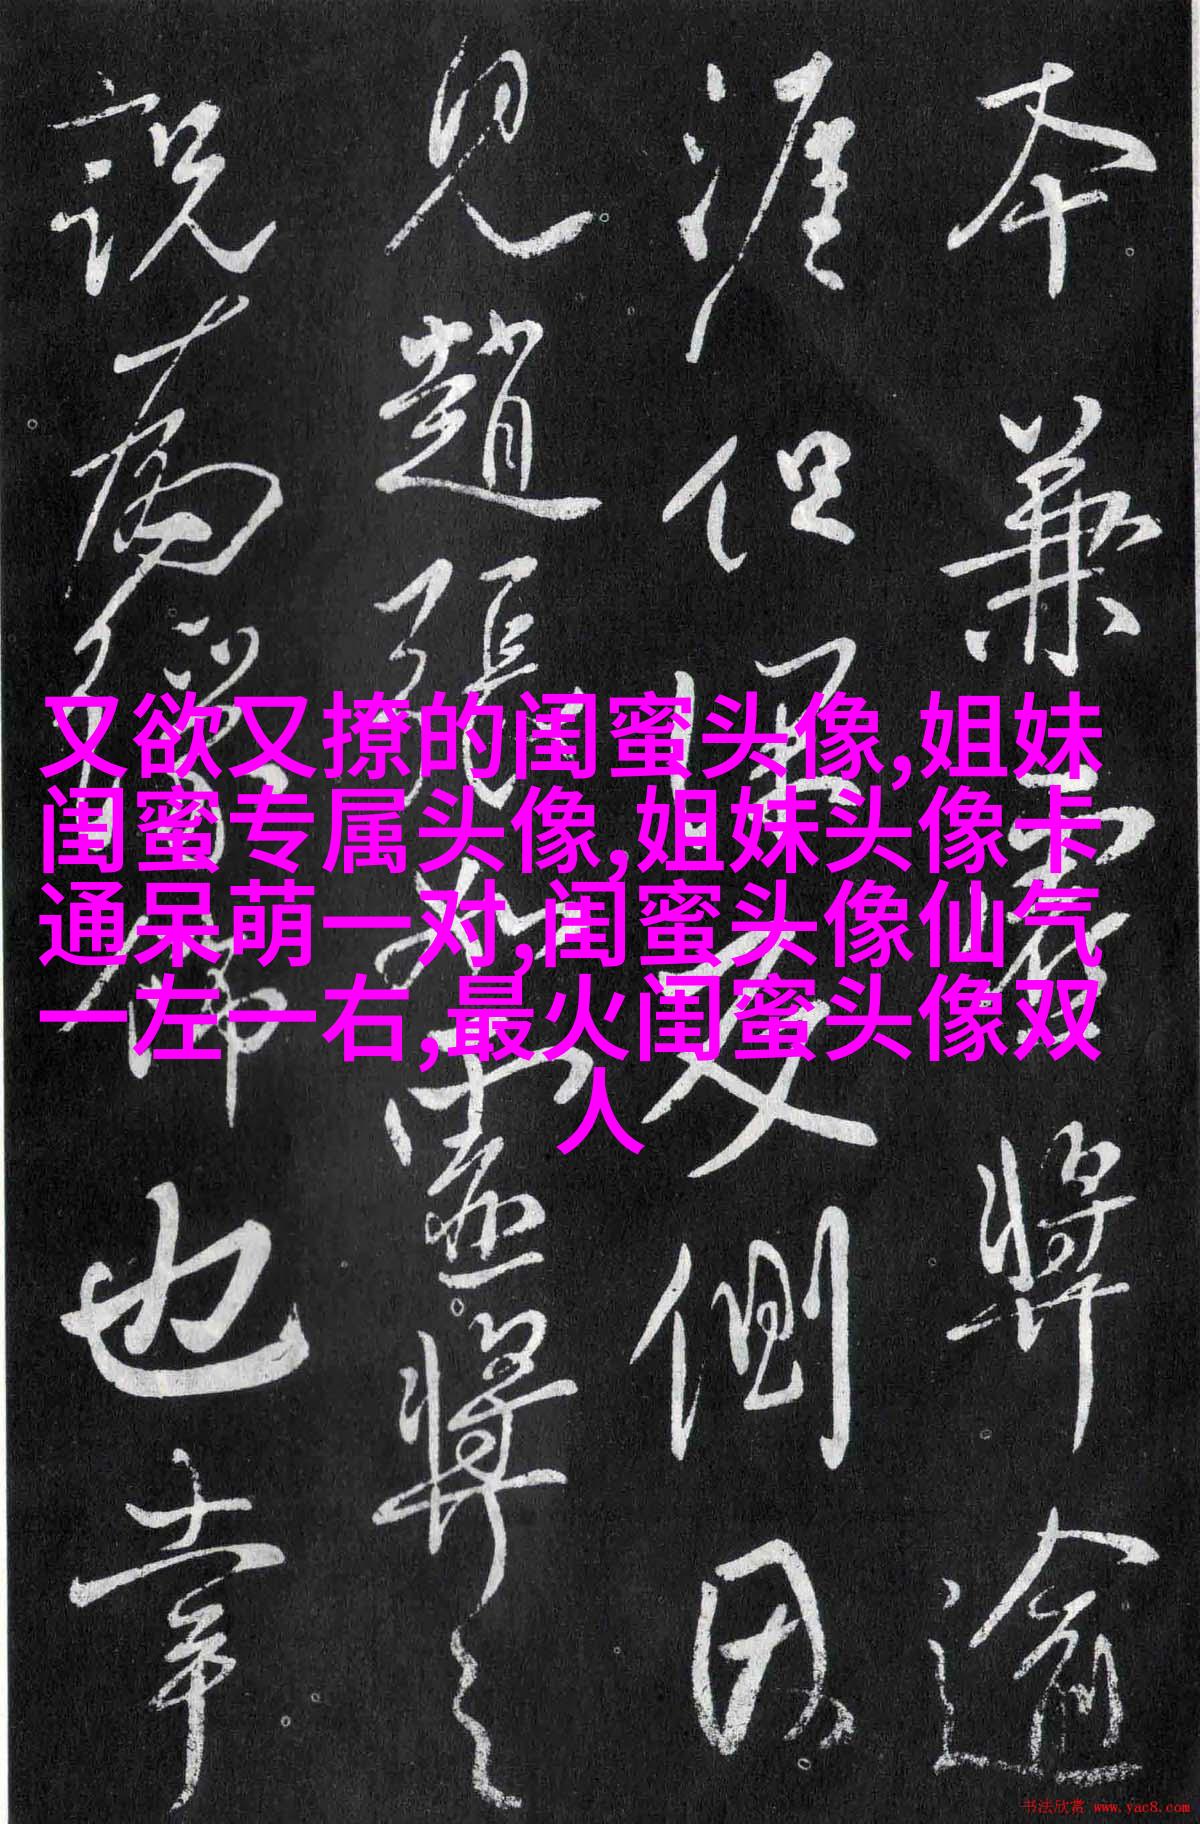 本兼裏將逾
涯但反側因
見趙張虛將之
說為儒也幸
又欲又撩的闺蜜头像,姐妹
闺蜜专属头像,姐妹头像卡
通呆萌一对,闺蜜头像仙气
一左一右,最火闺蜜头像双
人
书法欣赏 www.yac8.com